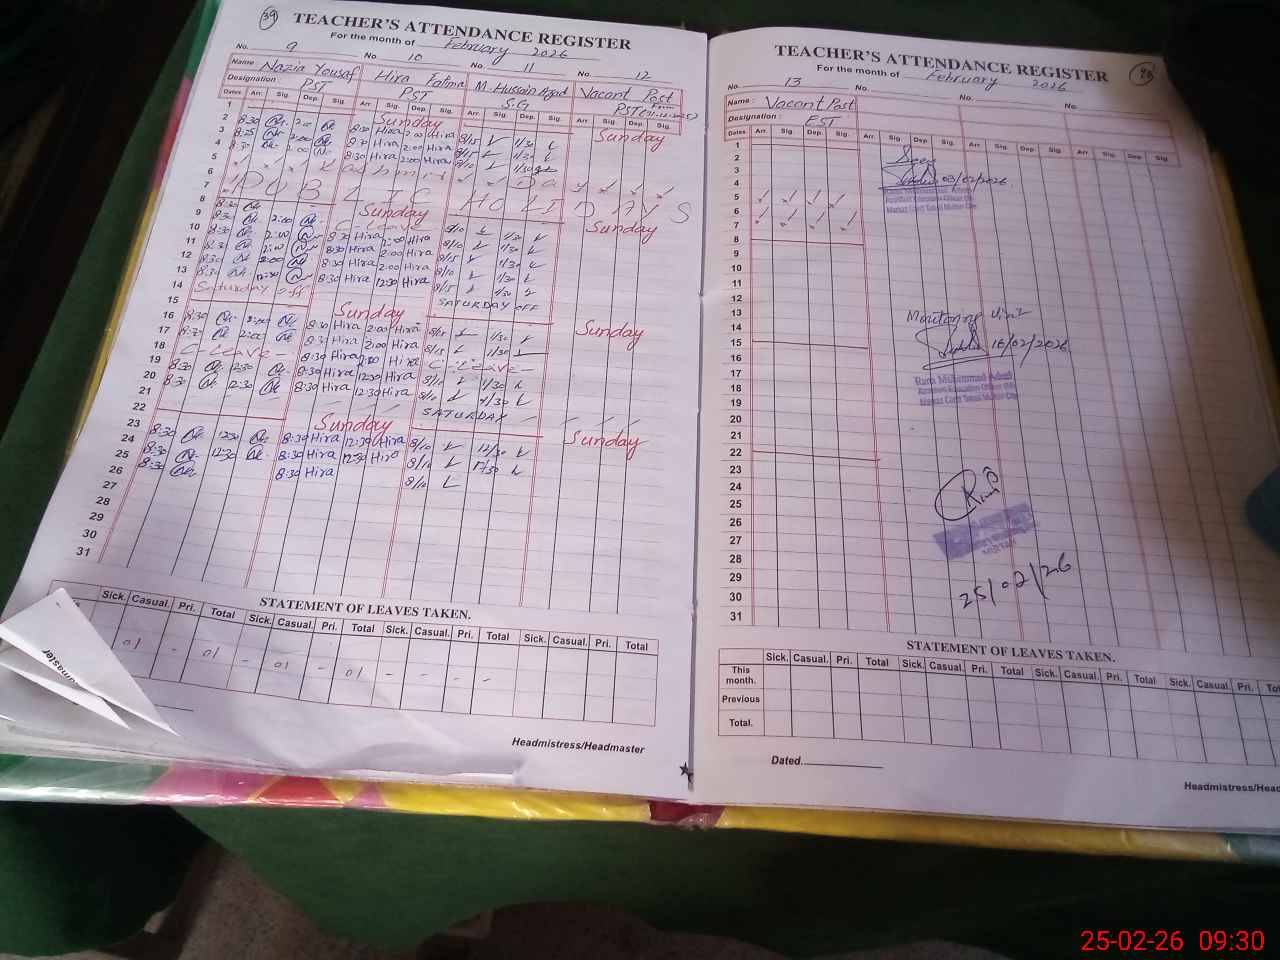 39
TEACHER'S ATTENDANCE REGISTER
For the month of February 2026
No. 9 No. 10 No. 11 No. 12
Name : Nazia Yousaf Hira Fatima M. Hussain Azad Vacant Post
Designation : PST PST S.G PST
Dates Arr. Sig. Dep. Sig. Arr. Sig. Dep. Sig.
1 Sunday Sunday
2 8:30 2:00 8:30 Hira 2:00 Hira 8/15 1/30
3 8:25 2:00 8:30 Hira 2:00 Hira 8/15 1/30
4 8:30 2:00 8:30 Hira 2:00 Hira 8/10 1/30
5 Kashmir Da
6
7 PUBLIC HOLIDAYS
8 Sunday Sunday
9 8:30 2:00 C-Leave 8/10 1/30
10 8:30 2:00 8:30 Hira 2:00 Hira 8/10 1/30
11 8:30 2:00 8:30 Hira 2:00 Hira 8/15 1/30
12 8:30 2:00 8:30 Hira 2:00 Hira 8/10 1/30
13 8:30 12:30 8:30 Hira 12:30 Hira 8/15 1/30
14 Saturday off SATURDAY OFF
15 Sunday Sunday
16 8:30 2:00 8:30 Hira 2:00 Hira 8/15 1/30
17 8:30 2:00 8:30 Hira 2:00 Hira 8/15 1/30
18 C-Leave- 8:30 Hira 2:00 Hira C-Leave-
19 8:30 12:30 8:30 Hira 12:30 Hira 8/10 1/30
20 8:30 12:30 8:30 Hira 12:30 Hira 8/10 1/30
21 SATURDAY
22 Sunday Sunday
23 8:30 12:30 8:30 Hira 12:30 Hira 8/10 12/30
24 8:30 12:30 8:30 Hira 12:30 Hira 8/10
25 8:30 8:30 Hira 8/10
26
27
28
29
30
31
STATEMENT OF LEAVES TAKEN.
Sick. Casual. Pri. Total Sick. Casual. Pri. Total Sick. Casual. Pri. Total Sick. Casual. Pri. Total
01 - 01 - 01 - 01 - - - -
Headmistress/Headmaster
TEACHER'S ATTENDANCE REGISTER
For the month of February 2026
No. 13 No. No. No.
Name : Vacant Post
Designation : EST
Dates Arr. Sig. Dep. Sig. Arr. Sig. Dep. Sig. Arr. Sig. Dep. Sig. Arr. Sig. Dep. Sig.
1
2
3
4 03/02/2026.
5
6
7
8
9
10
11
12
13 Monitoring Visit
14
15 16/02/2026.
16
17 Rana Muhammad
18 Assistant Education Officer
19
20
21
22
23
24
25
26
27
28
29 25/02/26
30
31
STATEMENT OF LEAVES TAKEN.
Sick. Casual. Pri. Total Sick. Casual. Pri. Total Sick. Casual. Pri. Total Sick. Casual. Pri.
This month.
Previous
Total.
Dated.
Headmistress/Head
25-02-26 09:30